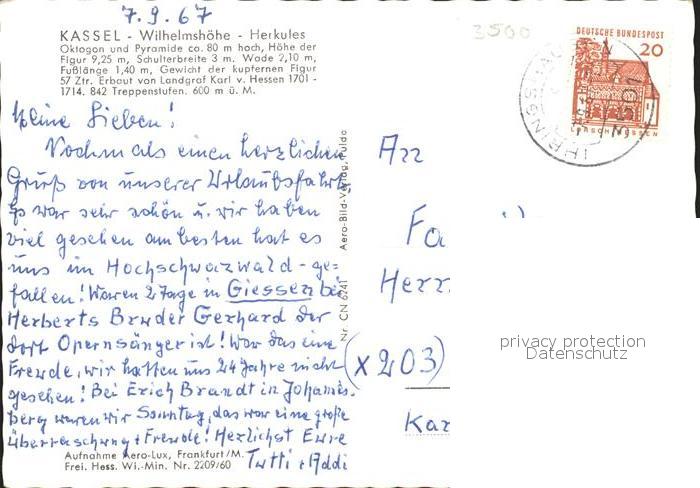 7.9.67
KASSEL - Wilhelmshöhe - Herkules
Oktogon und Pyramide ca. 80 m hoch, Höhe der
Figur 9,25 m, Schulterbreite 3 m. Wade 2,10 m,
Fußlänge 1,40 m, Gewicht der kupfernen Figur
57 Ztr. Erbaut von Landgraf Karl v. Hessen 1701 -
1714. 842 Treppenstufen. 600 m ü. M.
3500
DEUTSCHE BUNDESPOST
20
LORSCH/HESSEN
IHRINGSHAUSEN
3501
Meine Lieben!
Nochmals einen herzlichen
Gruß von unserer Urlaubsfahrt,
Es war sehr schön u. wir haben
viel gesehen am besten hat es
uns im Hochschwazwald - ge=
fallen! Waren 2 Tage in Giessen bei
Herberts Bruder Gerhard der
dort Opernsänger ist! War das eine
Freude, wir hatten uns 24 Jahre nicht
gesehen! Bei Erich Brandt in Johannis-
berg waren wir Sonntag, das war eine große
Überraschung + Freude! Herzlichst Eure
Tutti + Addi
Aufnahme Aero-Lux, Frankfurt/M.
Frei. Hess. Wi.-Min. Nr. 2209/60
Nr. CN 6241 Aero-Bild-Verlag, Fulda
An
Fa
Herr
(x 203)
Kar
privacy protection
Datenschutz